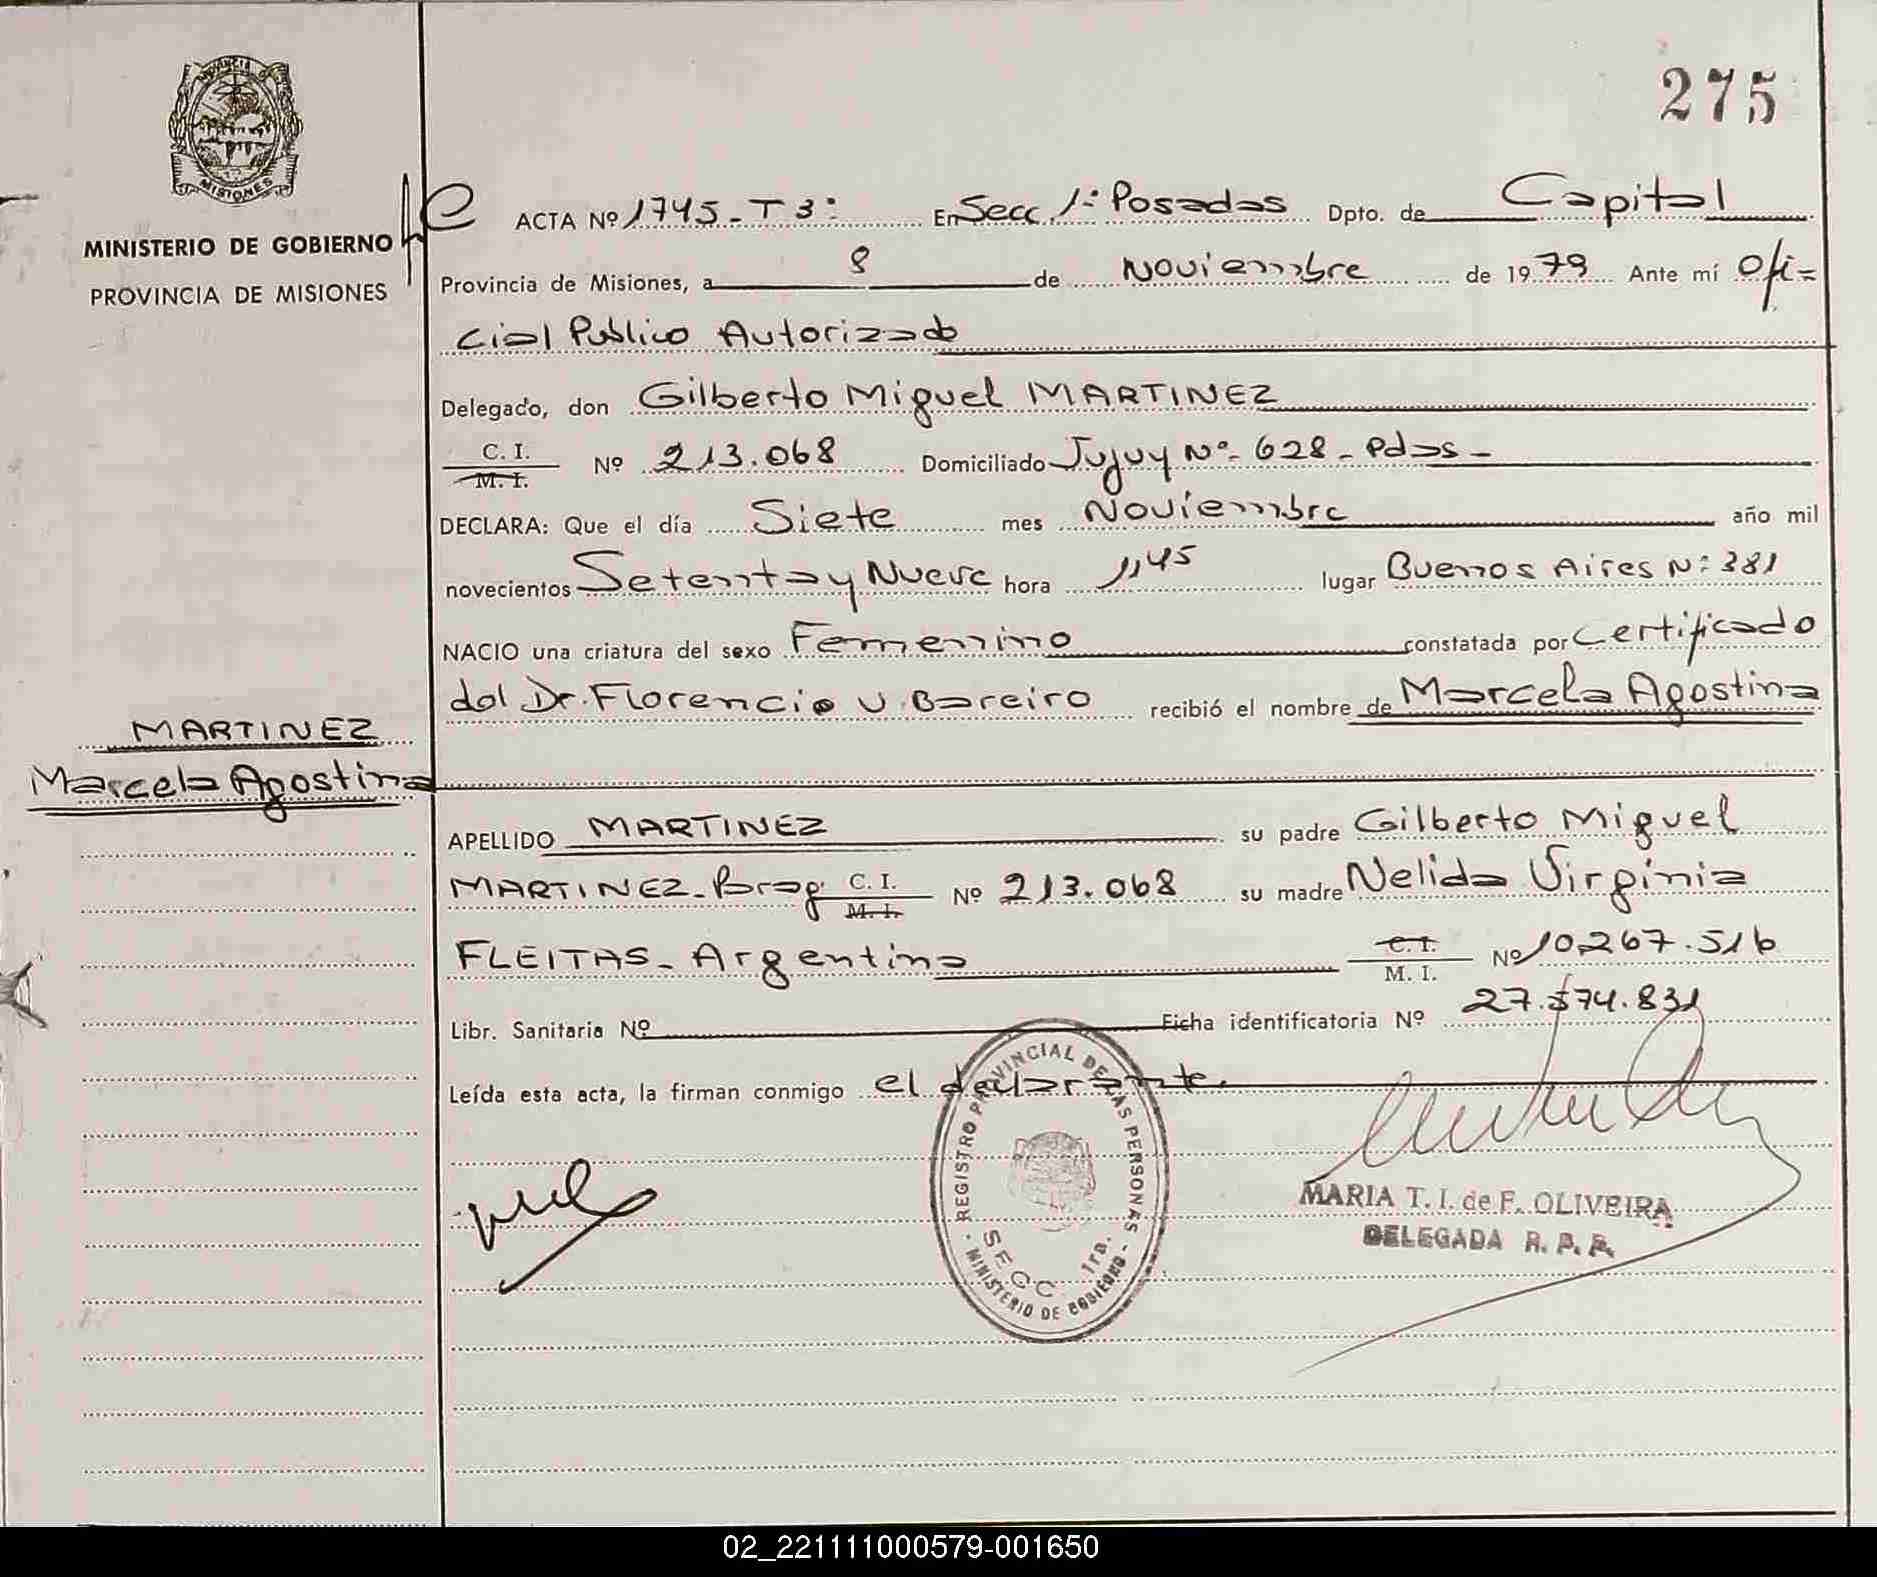 275
PROVINCIA DE
MISIONES
MINISTERIO DE GOBIERNO
PROVINCIA DE MISIONES
ACTA Nº 1745-T3: En Secc. 1ª Posadas Dpto. de Capital
Provincia de Misiones, a 8 de Noviembre de 1979 Ante mí Ofi=
cial Publico Autorizado
Delegado, don Gilberto Miguel MARTINEZ
C. I.
M. I. Nº 213.068 Domiciliado Jujuy Nº- 628- Pdas-
DECLARA: Que el día Siete mes Noviembre año mil
novecientos Setenta y Nueve hora 11,45 lugar Buenos Aires Nº 381
NACIO una criatura del sexo Femenino constatada por Certificado
del Dr. Florencio V. Bareiro recibió el nombre de Marcela Agostina
MARTINEZ
Marcela Agostina
APELLIDO MARTINEZ su padre Gilberto Miguel
MARTINEZ- Parag. C. I.
M. I. Nº 213.068 su madre Nelida Virginia
FLEITAS- Argentina C. I.
M. I. Nº 10.267.516
Libr. Sanitaria Nº Ficha identificatoria Nº 27.574.831
Leída esta acta, la firman conmigo el declarante.
REGISTRO PROVINCIAL DE LAS PERSONAS
SECC 1ra.
MINISTERIO DE GOBIERNO
MARIA T. I. de F. OLIVEIRA
DELEGADA R. P. P.
02_221111000579-001650